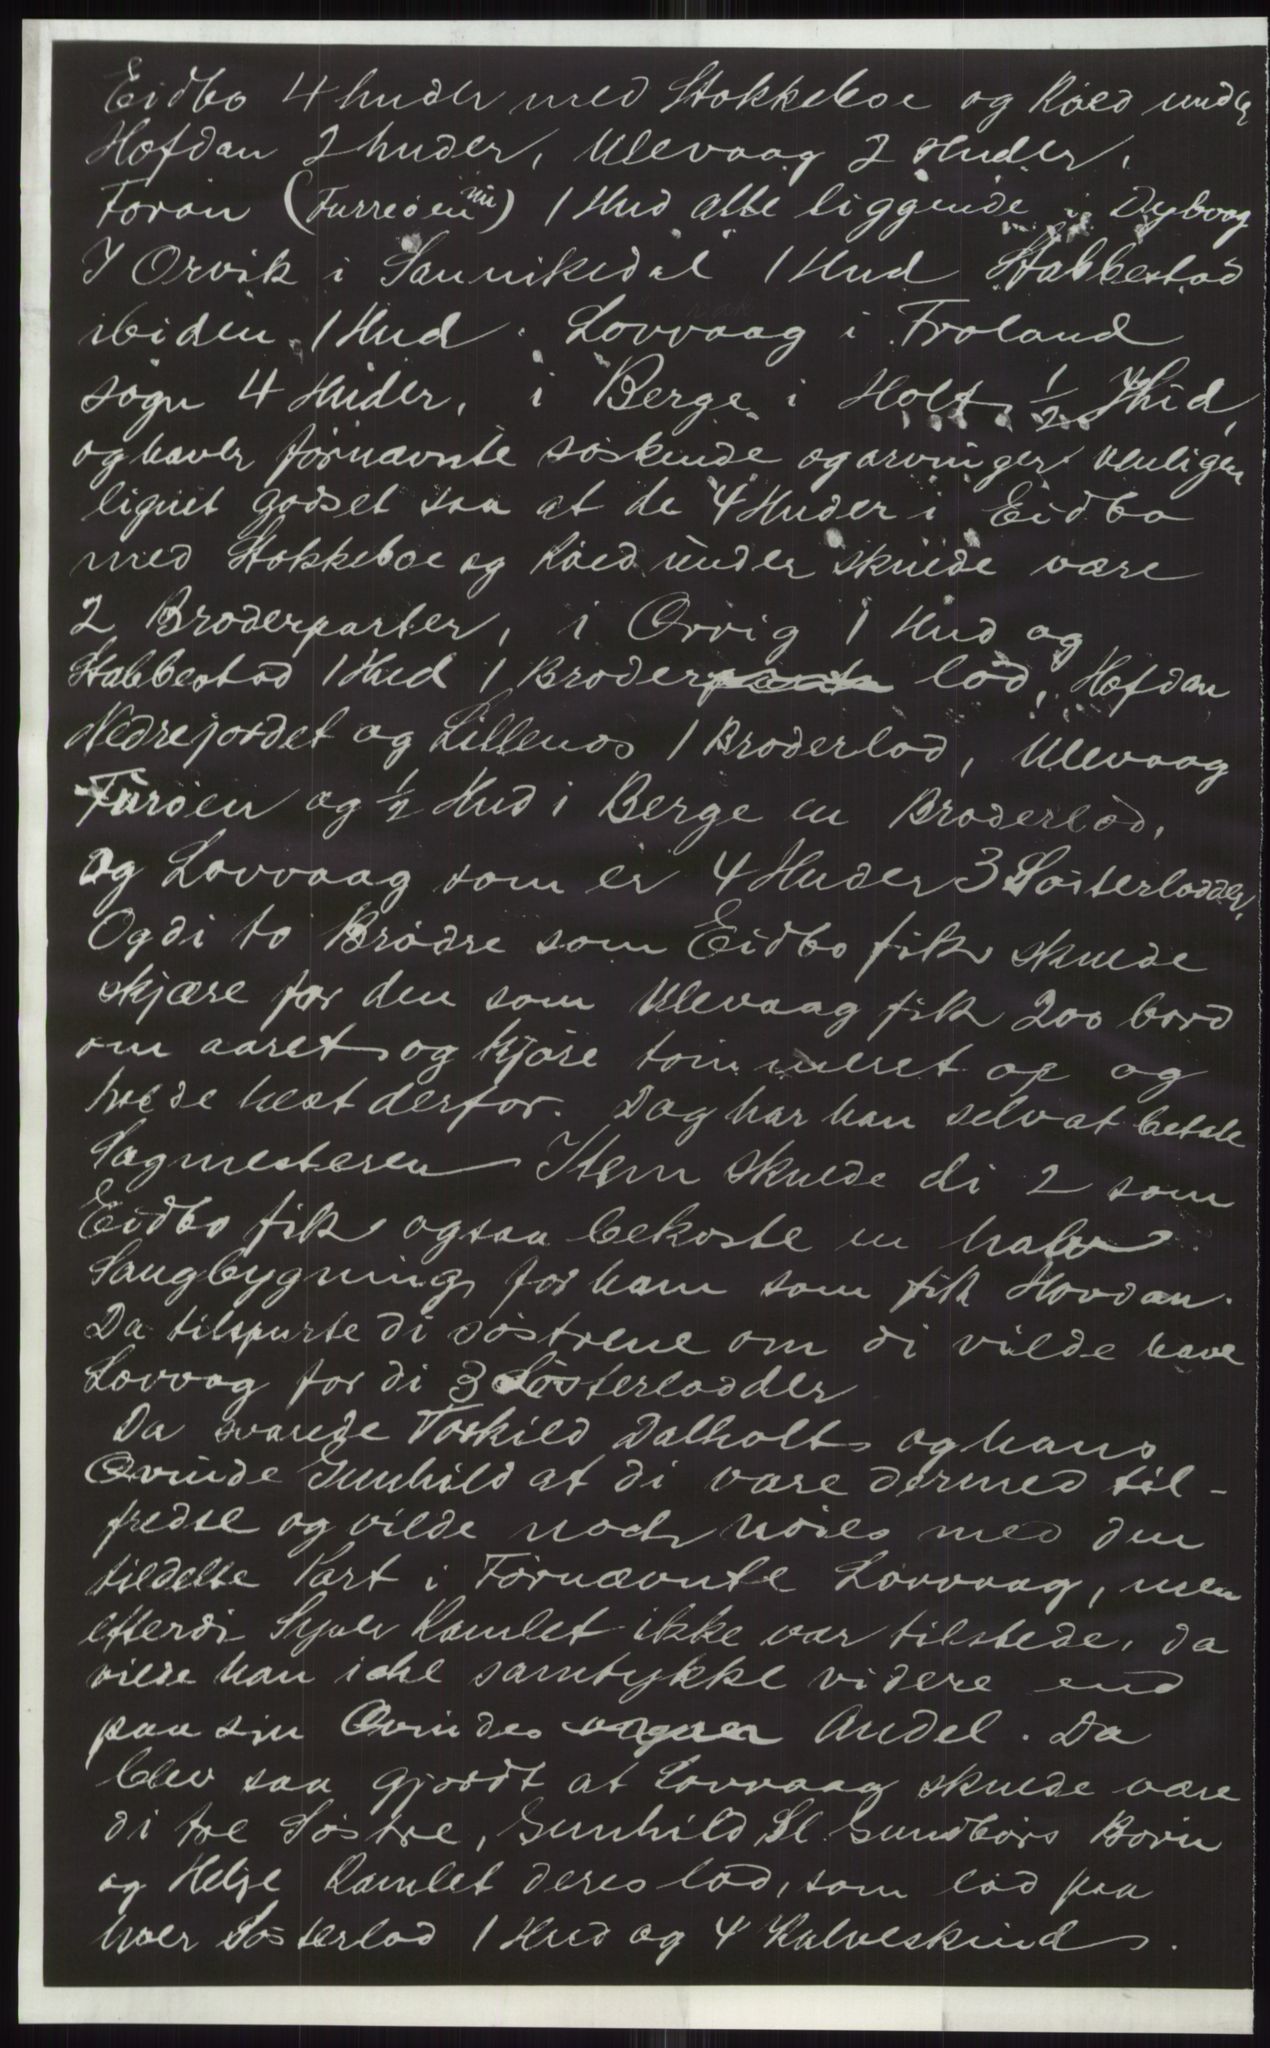 Eidbo 4 huder med Stokkeboe og Røed under
Hofdan 2 huder, Ulevaag 2 Huder,
Forön (Furreöen nu) 1 Hud alle liggende i Dybvag
I Orvik i Sannikedal 1 Hud Stabbestad
ibiden 1 Hud. Lovvaag i Froland
sogn 4 Huder, i Berge i Holt 1/2 Hud,
og haver fornævnte söskende og arvinger venligen
lignet godset saa at de 4 Huder i Eidbo
med Stokkeboe og Röed under skulde være
2 Broderparter, i Orvig 1 Hud og
Stabbestad 1 Hud 1 Broder lod, Hofdan
Nedrejordet og Lillenos 1 Broderlod, Ulevaag
Furöen og 1/2 Hud i Berge en Broderlod,
og Lovvaag som er 4 Huder 3 Sösterlodder,
Og di to Brödre som Eidbo fik skulde
skjære for den som Ulevaag fik 200 bord
om aaret og kjöre tömmeret op og
hest derfor. Dog har han selv at betale
Sagmesteren Item skulde di 2 som
Eidbo fik ogsaa bekoste en halv
Saugbygning for ham som fik Hovdan.
Da tilspurte di söstrene om di vilde have
Lovvag for di 3 Sösterlodder
Da svarede Torkild Dalholt og hans
Qvinde Gunhild at di vare dermed til-
fredse og vilde nok nöies med den
tildelte Part i Fornævnte Lovvaag, men
efterdi Syver Ramlet ikke var tilstede, da
vilde han icke samtykke videre end
paa sin Qvindes Andel. Da
blev saa gjordt at Lovvaag skulde være
di tre Söstre, Gunhild, Sl. Gundbörs Börn
og Helje Ramlet deres lod, som löd paa
hver Sösterlod 1 Hud og 4 Kalveskind.